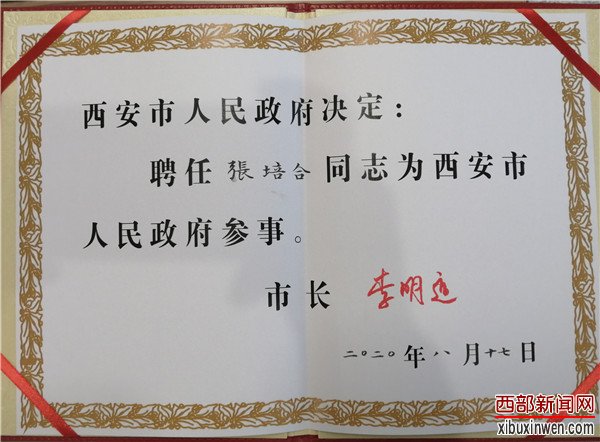 西安市人民政府决定：
聘任張培合同志为西安市
人民政府参事。
市长 李明远
二〇二〇年八月十七日
西部新闻网
xibuxinwen.com